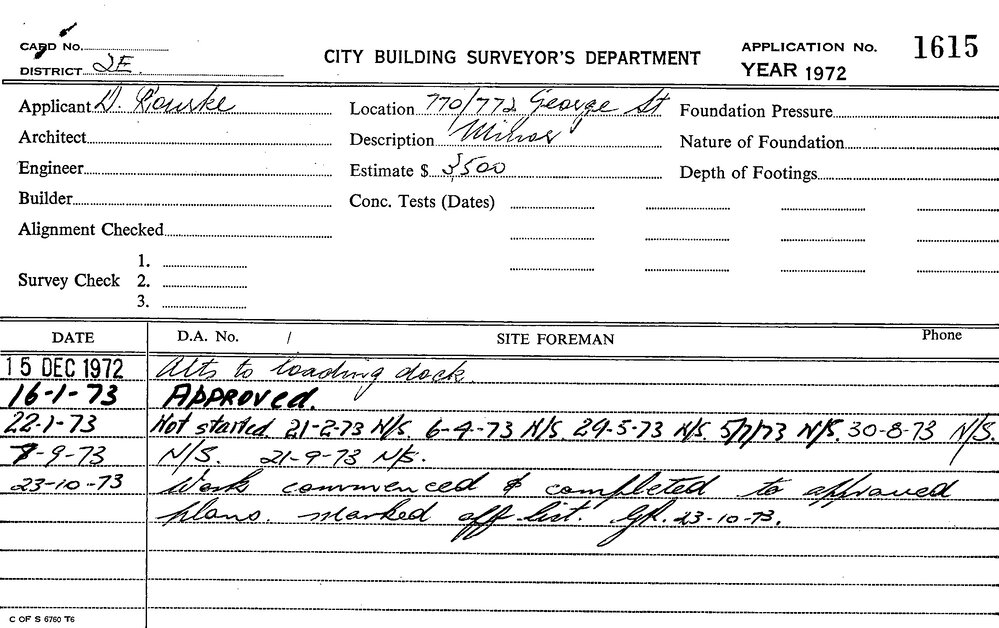 CARD No.
DISTRICT 2E
CITY BUILDING SURVEYOR'S DEPARTMENT
APPLICATION No. 1615
YEAR 1972
Applicant D. Rourke Location 770/772 George St Foundation Pressure
Architect Description Minor Nature of Foundation
Engineer Estimate $ 3500 Depth of Footings
Builder Conc. Tests (Dates)
Alignment Checked
1.
Survey Check 2.
3.
DATE D.A. No. / SITE FOREMAN Phone
15 DEC 1972 Alts to loading dock
16-1-73 APPROVED.
22-1-73 Not started 21-2-73 N/S. 6-4-73 N/S. 29-5-73 N/S. 5/7/73 N/S. 30-8-73 N/S.
7-9-73 N/S. 21-9-73 N/S.
23-10-73 Work commenced & completed to approved
plans. marked off list. 23-10-73.
C OF S 6760 T6